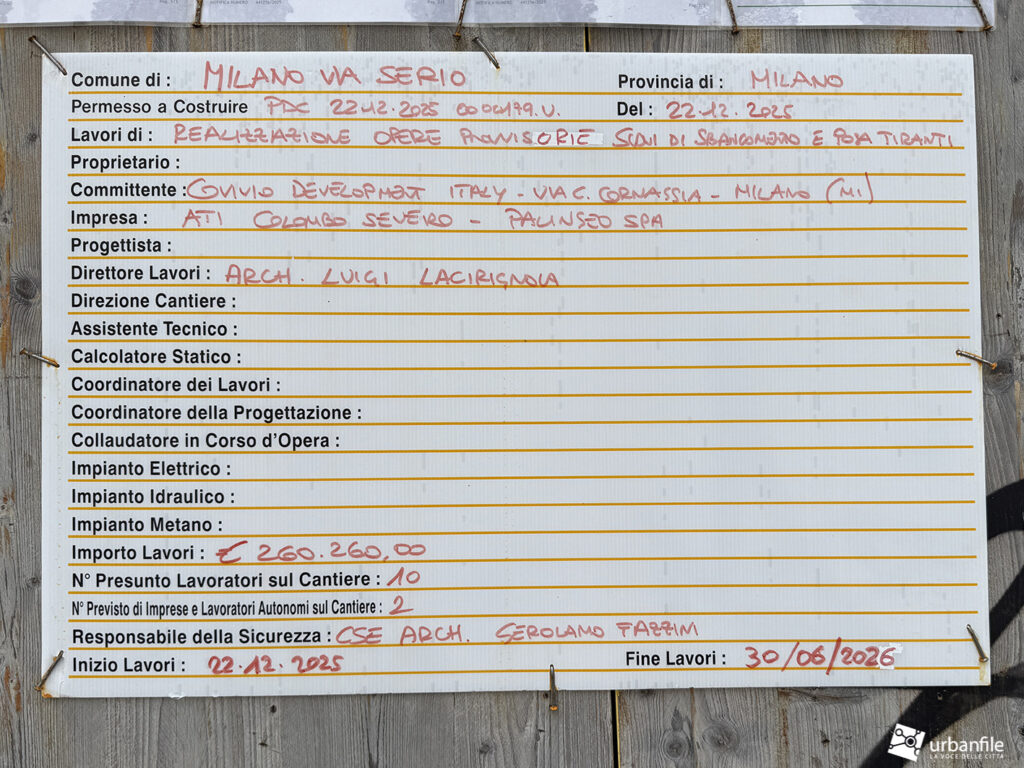 Pag. 1/1 NOTIFICA NUMERO 441276/2025 Pag. 2/1 NOTIFICA NUMERO 441276/2025
Comune di : MILANO VIA SERIO Provincia di : MILANO
Permesso a Costruire PDC 22.12.2025 Del : 22.12.2025
Lavori di : REALIZZAZIONE OPERE PROVVISORIE DI E POSA TIRANTI
Proprietario :
Committente : COVIVIO DEVELOPMENT ITALY - VIA C. CORNAGGIA - MILANO (MI)
Impresa : ATI COLOMBO SEVERO - PALINGEO SPA
Progettista :
Direttore Lavori : ARCH. LUIGI LACIRIGNOLA
Direzione Cantiere :
Assistente Tecnico :
Calcolatore Statico :
Coordinatore dei Lavori :
Coordinatore della Progettazione :
Collaudatore in Corso d'Opera :
Impianto Elettrico :
Impianto Idraulico :
Impianto Metano :
Importo Lavori : € 260.260,00
N° Presunto Lavoratori sul Cantiere : 10
N° Previsto di Imprese e Lavoratori Autonomi sul Cantiere : 2
Responsabile della Sicurezza : CSE ARCH.
Inizio Lavori : 22.12.2025 Fine Lavori : 30/06/2026
urbanfile
LA VOCE DELLE CITTÀ